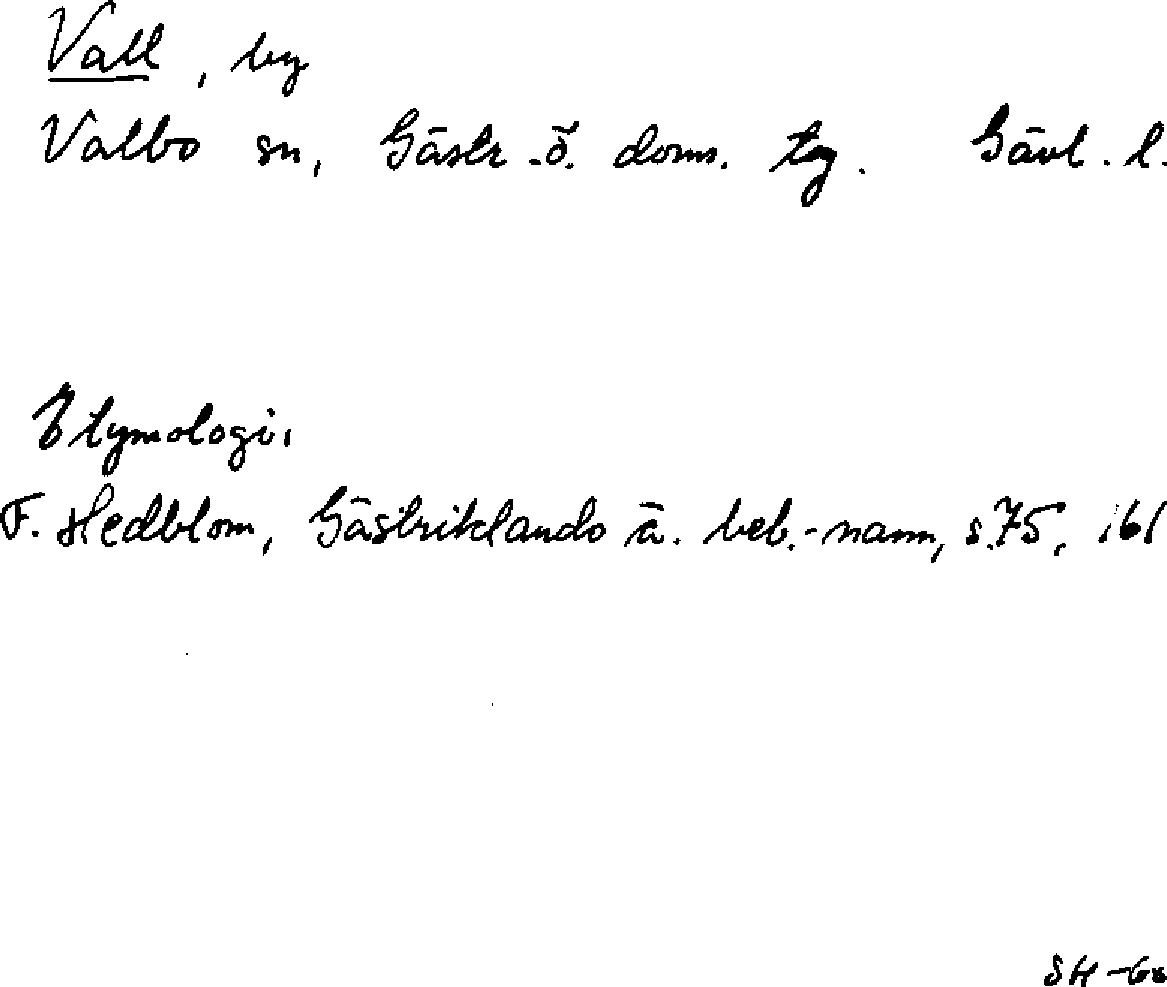 Vall, by
Valbo sn, Gästr.-ö. doms. tg. Gävl. l.
Etymologi.
F. Hedblom, Gästriklands ä. beb.-namn, s. 75, 161
SH-60